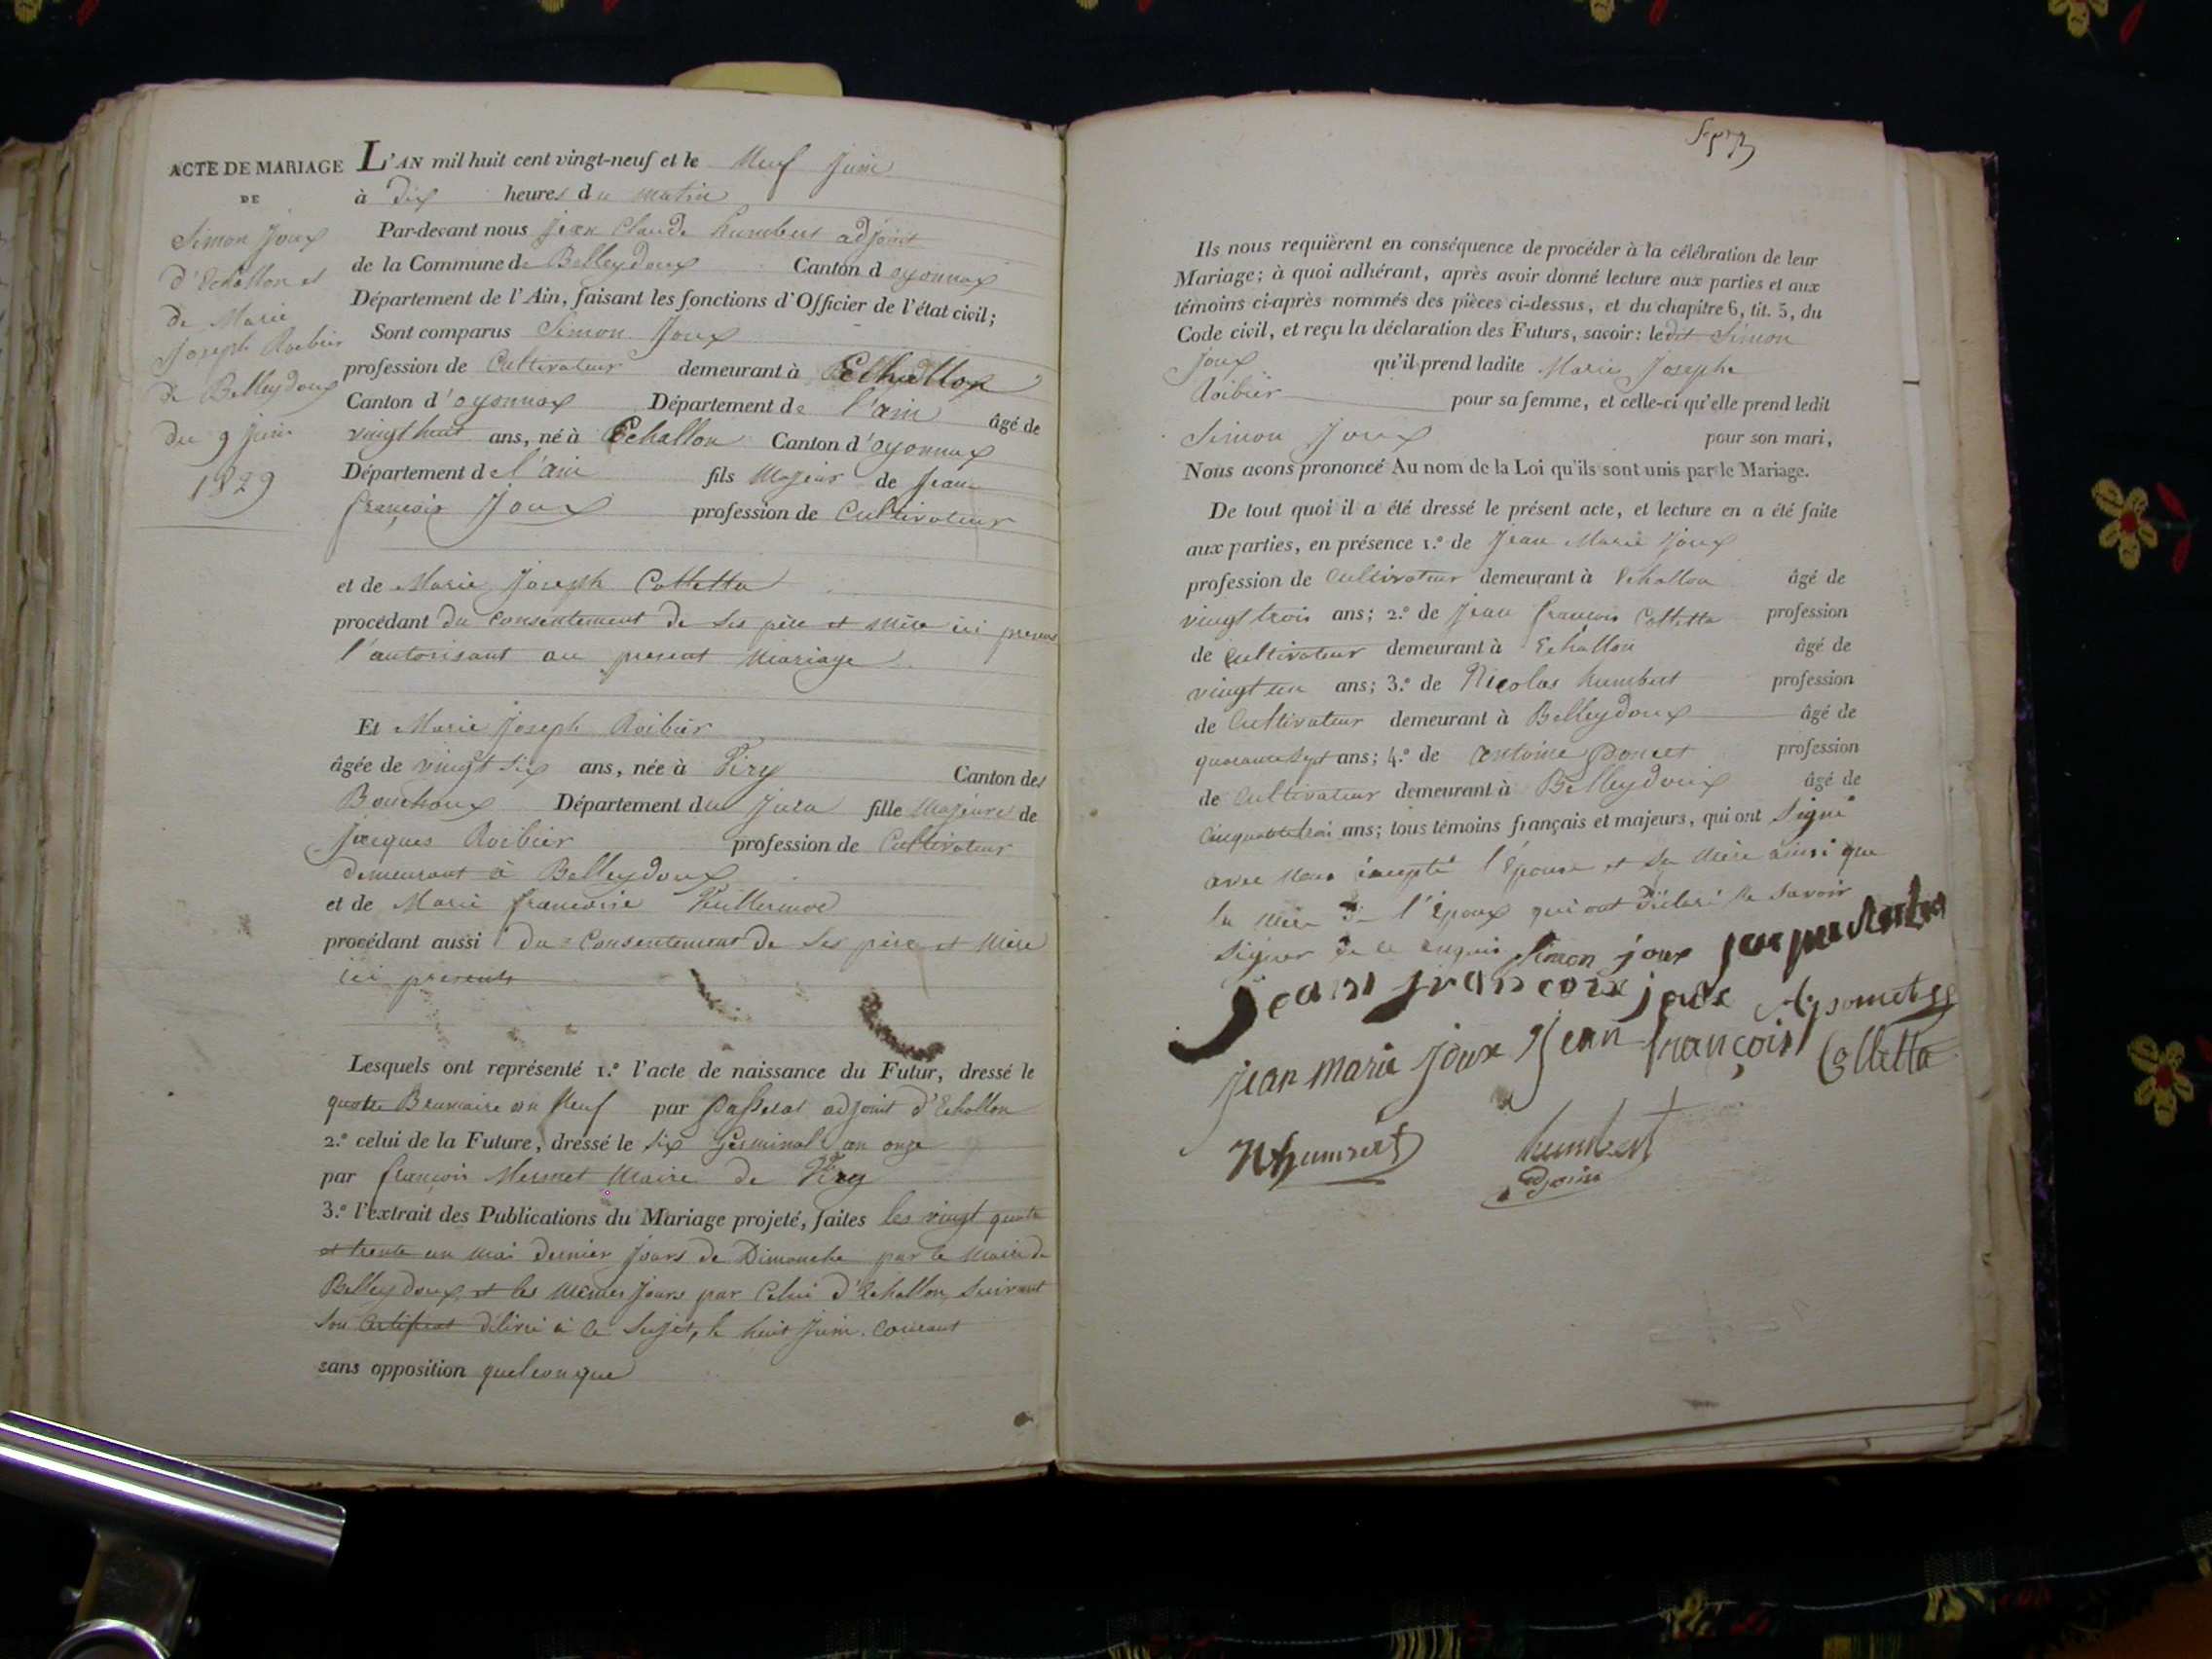 ACTE DE MARIAGE
DE
Simon Joux
d'Echallon et
de Marie
Joseph Roibier
de Belleydoux
du 9 juin
1829
L'AN mil huit cent vingt-neuf et le Neuf Juin
à dix heures du matin
Par-devant nous Jean Claude humbert adjoint
de la Commune de Belleydoux Canton d oyonnax
Département de l'Ain, faisant les fonctions d'Officier de l'état civil;
Sont comparus Simon Joux
profession de Cultivateur demeurant à Echallon
Canton d'oyonnax Département de l'ain âgé de
vingt huit ans, né à Echallon Canton d'oyonnax
Département de l'ain fils Majeur de Jean
françois Joux profession de Cultivateur
et de Marie Joseph Colletta
procédant du consentement de ses père et mère ici présens
l'autorisant au present Mariage
Et Marie Joseph Roibier
âgée de vingt six ans, née à Viry Canton des
Bouchoux Département du Jura fille Majeure de
Jacques Roibier profession de Cultivateur
demeurant à Belleydoux
et de Marie françoise Vuillermoz
procédant aussi du Consentement de ses père et Mère
ici presents
Lesquels ont représenté 1.º l'acte de naissance du Futur, dressé le
quatre Brumaire an Neuf par Passerat adjoint d'Echallon
2.º celui de la Future, dressé le six Germinal an onze
par françois Mermet Maire de Viry
3.º l'extrait des Publications du Mariage projeté, faites les vingt quatre
et trente un mai dernier jours de Dimanche par le Maire de
Belleydoux et les mêmes jours par Celui d'Echallon, suivant
son certificat délivré à ce sujet, le huit Juin courant
sans opposition quelconque
Ils nous requièrent en conséquence de procéder à la célébration de leur
Mariage; à quoi adhérant, après avoir donné lecture aux parties et aux
témoins ci-après nommés des pièces ci-dessus, et du chapitre 6, tit. 5, du
Code civil, et reçu la déclaration des Futurs, savoir: ledit Simon
Joux qu'il prend ladite Marie Josephe
Roibier pour sa femme, et celle-ci qu'elle prend ledit
Simon Joux pour son mari,
Nous avons prononcé Au nom de la Loi qu'ils sont unis par le Mariage.
De tout quoi il a été dressé le présent acte, et lecture en a été faite
aux parties, en présence 1.º de Jean Marie Joux
profession de Cultivateur demeurant à Echallon âgé de
vingt trois ans; 2.º de Jean françois Colletta profession
de Cultivateur demeurant à Echallon âgé de
vingt un ans; 3.º de Nicolas humbert profession
de Cultivateur demeurant à Belleydoux âgé de
quarante sept ans; 4.º de antoine poncet profession
de Cultivateur demeurant à Belleydoux âgé de
Cinquante trois ans; tous témoins français et majeurs, qui ont Signé
avec Nous excepté l'épouse et sa Mère ainsi que
la Mère de l'époux qui ont déclaré ne savoir
signer de ce enquis Simon joux
jean francoix joux
jean marie joux jean françois Colletta
N humbert humbert
adjoint